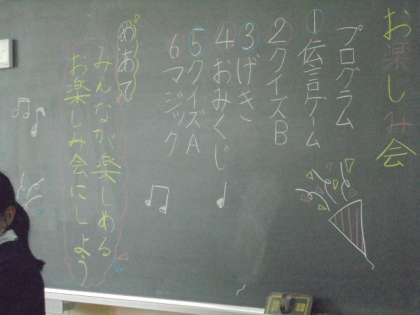 お楽しみ会
プログラム
1伝言ゲーム
2クイズB
3げき
4おみくじ
5クイズA
6マジック
めあて
みんなが楽しめる
お楽しみ会にしよう